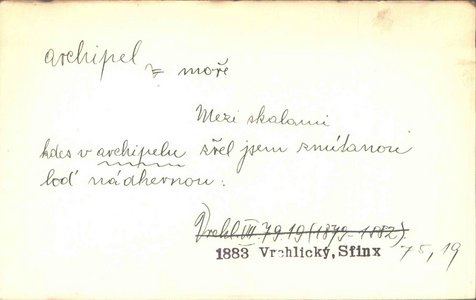 archipel
= moře
Mezi skalami
kdes v archipelu zřel jsem zmítanou
loď nádhernou:
Vrchl. VII 79.19 (1879-1882)
1883 Vrchlický, Sfinx 75, 19